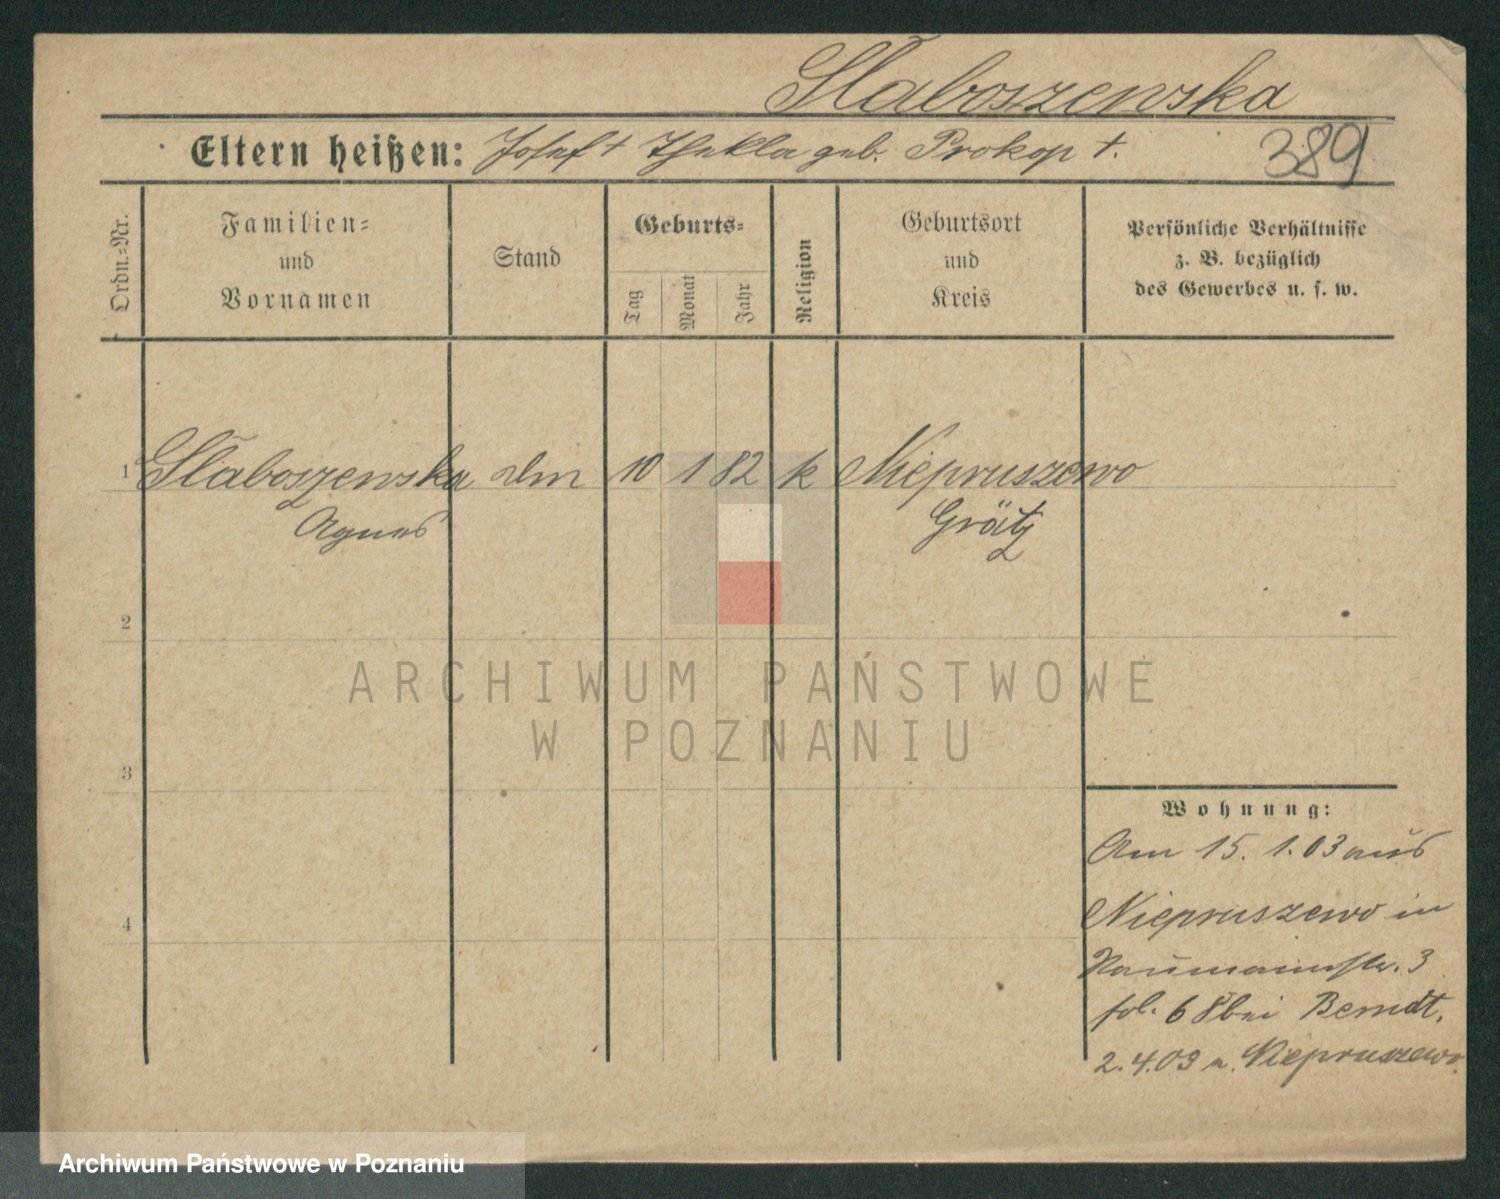 Słaboszewska
Eltern heißen: Josef † Thekla geb. Prokop †.
389
Ordn.-Nr.
Familien-
und
Vornamen
Stand
Geburts-
Tag
Monat
Jahr
Religion
Geburtsort
und
Kreis
Persönliche Verhältnisse
z. B. bezüglich
des Gewerbes u. s. w.
1 Słaboszewska 10 1 82 k Niepruszewo
Agnes Grätz
2
3
4
ARCHIWUM PAŃSTWOWE
W POZNANIU
Wohnung:
Am 15. 1. 03 aus
Niepruszewo in
Naumannstr. 3
fol. 68 bei Berndt.
2. 4. 03 n. Niepruszewo.
Archiwum Państwowe w Poznaniu